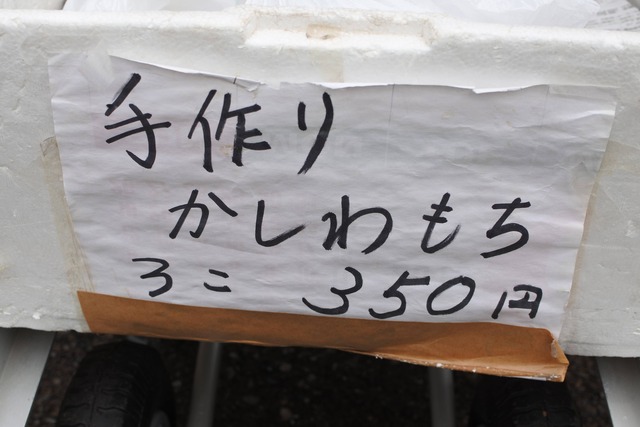 手作り
かしわもち
3こ 350円